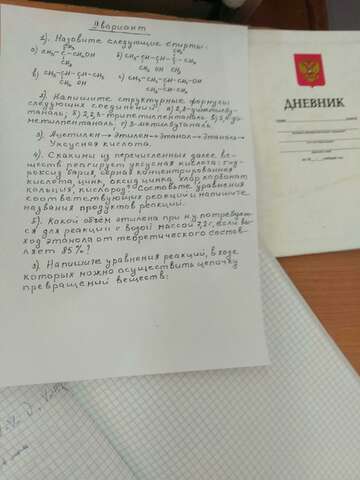 I вариант
1). Назовите следующие спирты:
CH₃ CH₃
а) CH₃-C-CH₂OH б) CH₃-CH-CH-C-CH₃
CH₃ CH₃ OH CH₃
в) CH₃-CH-CH-CH₃ г) CH₃-CH₂-CH-OH
CH₃ OH CH₂-CH-CH₃
2). Напишите структурные формулы
следующих соединений: а) 2,3-
таналь; б) 2,2,3-триметилпентаналь в)
метилпентаналь г) 3-метилбутаналь
3). Ацетилен → Этилен → Этанол → Этаналь →
Уксусная кислота.
4). С какими из перечисленных далее ве-
ществ реагирует уксусная кислота: г-
роксид бария, серная концентрированная
кислота, цинк, оксид цинка, хлор, карбонат
кальция, кислород. Составьте уравнения
соответствующих реакций и напишите
названия продуктов реакции.
5). Какой объём этилена при н.у. потребует-
ся для реакции с водой массой 7,2 г, если вы-
ход этанола от теоретического состав-
ляет 85%?
3). Напишите уравнения реакций, в ходе
которых можно осуществить цепочку
превращений веществ:
ДНЕВНИК